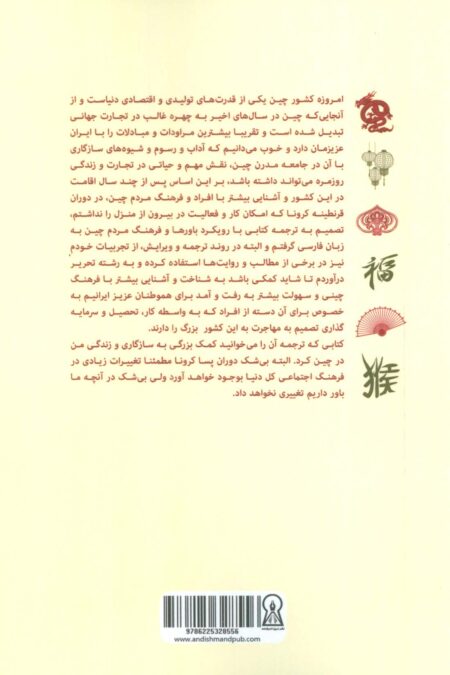 امروزه کشور چین یکی از قدرت‌های تولیدی و اقتصادی دنیاست و از
آنجایی‌که چین در سال‌های اخیر به چهره غالب در تجارت جهانی
تبدیل شده است و تقریبا بیشترین مراودات و مبادلات را با ایران
عزیزمان دارد و خوب می‌دانیم که آداب و رسوم و شیوه‌های سازگاری
با آن در جامعه مدرن چین، نقش مهم و حیاتی در تجارت و زندگی
روزمره می‌تواند داشته باشد، بر این اساس پس از چند سال اقامت
در این کشور و آشنایی بیشتر با افراد و فرهنگ مردم چین، در دوران
قرنطینه کرونا که امکان کار و فعالیت در بیرون از منزل را نداشتم،
تصمیم به ترجمه کتابی با رویکرد باورها و فرهنگ مردم چین به
زبان فارسی گرفتم و البته در روند ترجمه و ویرایش، از تجربیات خودم
نیز در برخی از مطالب و روایت‌ها استفاده کرده و به رشته تحریر
درآوردم تا شاید کمکی باشد به شناخت و آشنایی بیشتر با فرهنگ
چینی و سهولت بیشتر به رفت و آمد برای هموطنان عزیز ایرانیم به
خصوص برای آن دسته از افراد که به واسطه کار، تحصیل و سرمایه
گذاری تصمیم به مهاجرت به این کشور بزرگ را دارند.
کتابی که ترجمه آن را می‌خوانید کمک بزرگی به سازگاری و زندگی من
در چین کرد. البته بی‌شک دوران پسا کرونا مطمئنا تغییرات زیادی در
فرهنگ اجتماعی کل دنیا بوجود خواهد آورد ولی بی‌شک در آنچه ما
باور داریم تغییری نخواهد داد.
福
猴
9786225328556
www.andishmandpub.com